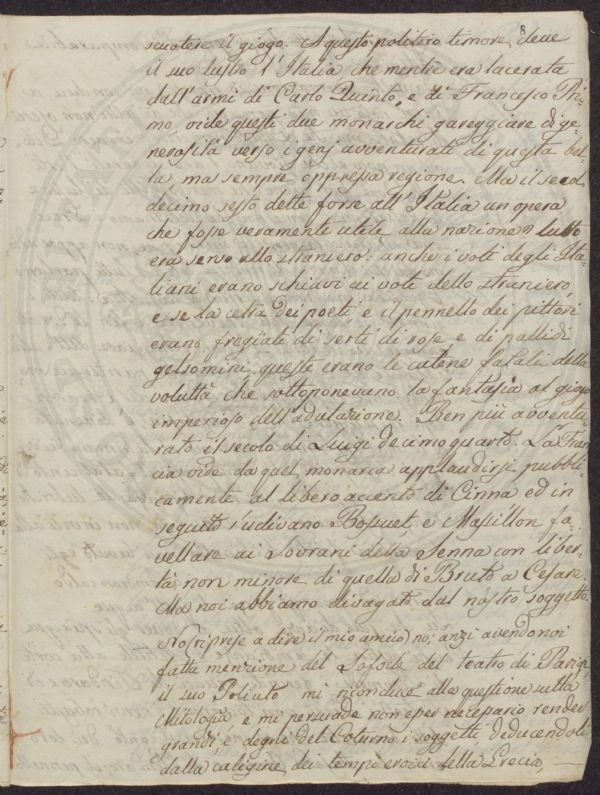 8
scuotere il giogo. A questo politico timore, deve
il suo lustro l'Italia che mentre era lacerata
dall'armi di Carlo Quinto, e di Francesco Pri-
mo, vide questi due monarchi gareggiare di ge-
nerosità verso i genj avventurati di questa bel-
la, ma sempre oppressa regione. Ma il secol
decimo sesto dette forse all'Italia un opera
che fosse veramente utile alla nazione? tutto
era servo allo straniero: anche i voti degli Ita-
liani erano schiavi ai voti dello straniero,
e se la cetra dei poeti e il pennello dei pittori
erano fregiate di serti di rose, e di pallidi
gelsomini, queste erano le catene fatali della
voluttà che sottoponevano la fantasia al giogo
imperioso dell'adulazione. Ben più avventu-
rato il secolo di Luigi decimoquarto. La Fran-
cia vide da quel monarca applaudirsi pubbli-
camente al libero accento di Cinna ed in
seguito s'udivano Bossuet e Massillon fa-
vellare ai Sovrani della Senna con liber-
tà non minore di quella di Bruto a Cesare.
Ma noi abbiamo divagato dal nostro soggetto.
No (riprese a dire il mio amico) no; anzi avendo noi
fatta menzione del Sofocle del teatro di Parigi,
il suo Poliuto mi riconduce alla questione sulla
Mitologia, e mi persuade non esser necessario render
grandi, e degni del Coturno i soggetti deducendoli
dalla caligine dei tempi eroici della Grecia, —